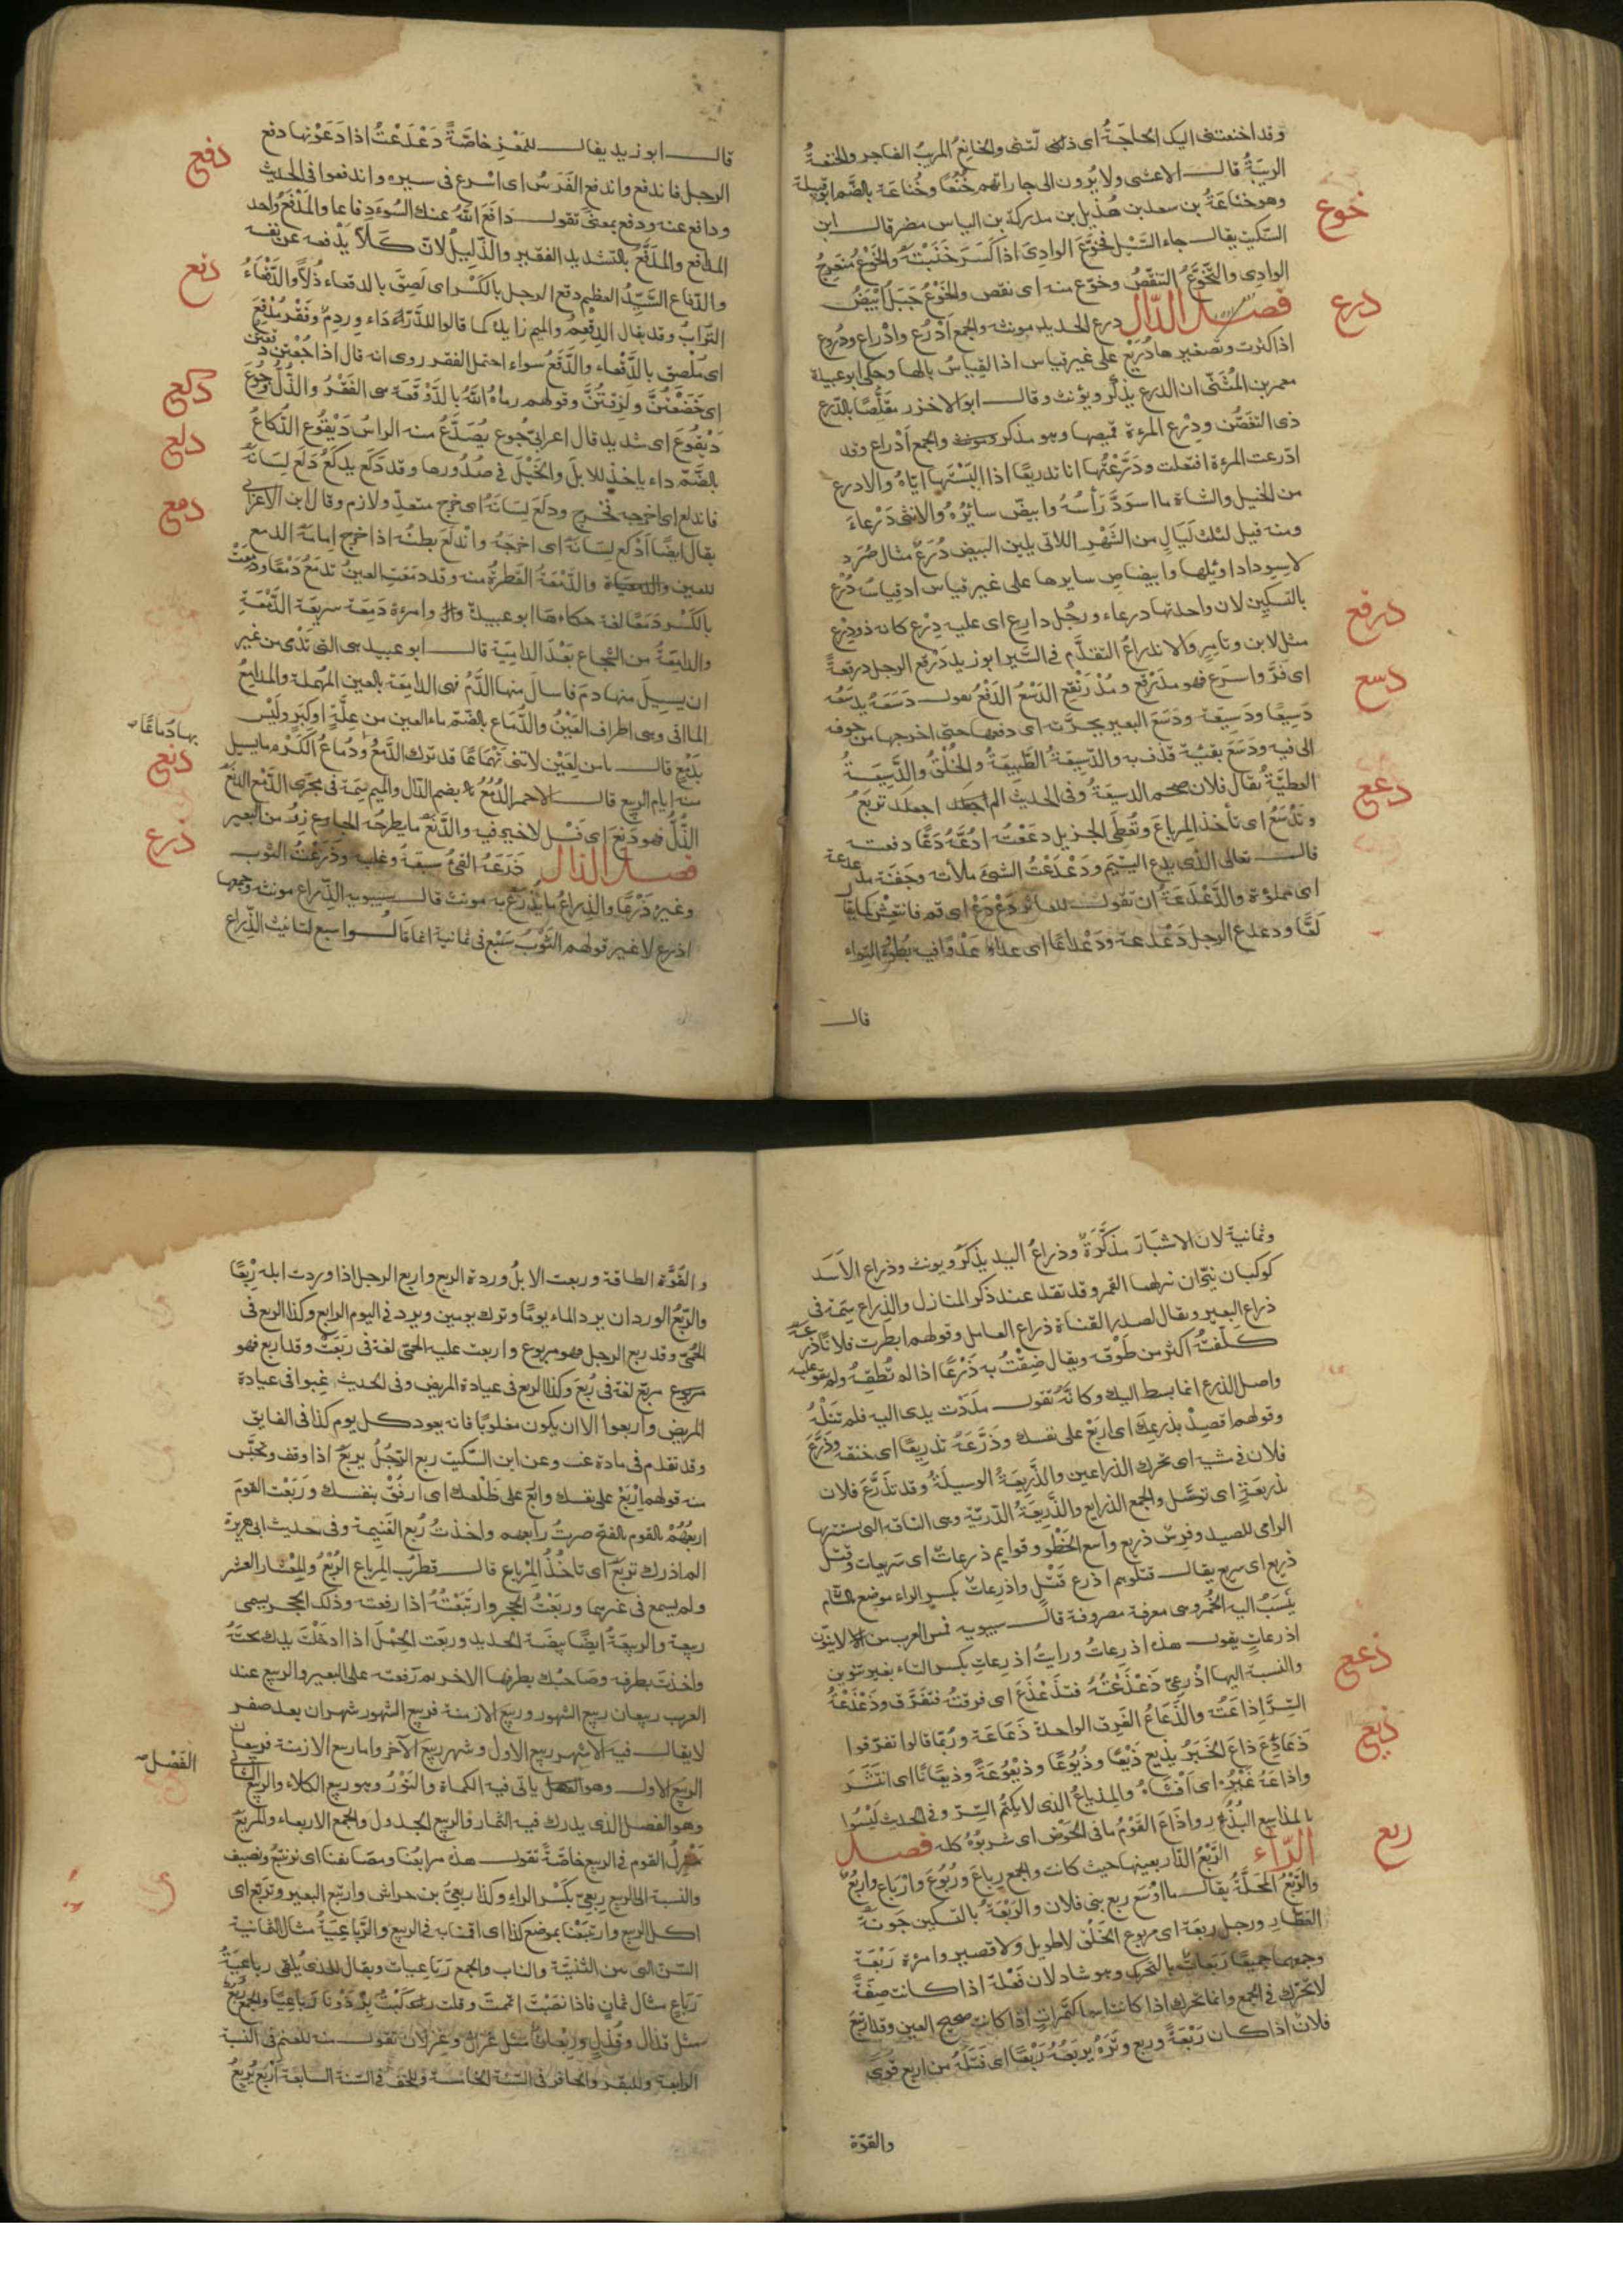 وقد اخنعتنى اليك الحاجَةُ اى ذللتنى والخانِعُ المريبُ الفاجر والخنعةُ
الريبَةُ قال الاعشى ولا يُرون الى جاراتهم خُنُعًا وخُناعَة بالضّم ابو قبيلة
وهو خناعَةُ بن سعد بن هُذيل بن مدركة بن الياس مضر قال ابن
السّكيت يقال جاء السَّيل فخَوَّعَ الوادِىَ اذا كَسَرَ جَنْبتَيْه والخَوْعُ مُنعَرِجُ
الوادِى والتَّخَوُّعُ التنقّصُ وخوّع منه اى نقص والخَوْعُ جَبَلٌ ابْيَضُ
خوع
فصل الدّال درع الحديد مونثه والجمع اَدْرُع وادْراع ودُروع
درع
اذا كثرت وتصغيرها دُرَيْعٌ على غير قياس اذ القياسُ بالها وحكى ابو عبيدة
معمر بن المُثَنّى ان الدرع يذكّر ويؤنث وقال ابو الاخزر مقلّصًا بالدّرع
ذى التغضّن ودِرْع المرءة قميصها وهو مذكر والجمع اَدْراع وقد
ادّرعت المرءة افتعلت ودَرَّعْتُها انا تدريعًا اذا اَلبَسْتها ايّاهُ والادرع
من الخيل والشاة ما اسوَدَّ رَأسُهُ وابيضّ سائرُهُ والانثى دَرْعاءَ
ومنه قيل لثلث لَيَالٍ من الشَّهْرِ اللاتى يلين البيض دُرَعٌ مثال صُرَد
لاسِوداد اوئِلها وابيضاض سايرها على غير قياس اذ قياسُه دُرْع
بالتسكين لان واحدتها درعاء ورجُل دارِع اى عليه دِرْع كانه ذو دِرْع
مثل لابن وتامِرٍ والاندراعُ التقدّم فى السَّير ابو زيد دَرْقع الرجل درقعةً
درقع
اى فَرَّ واسرَع فهو مدَرْقِع ومُدْرَنْقِع الدَسْعُ الدَفْعُ تقول دَسَعَهُ يدسَعُه
دسع
دَسِيعًا ودَسِيعَة ودَسَعَ البعير بجرَّته اى دفعها حتى اخرجها من جوفه
الى فيه ودَسَعَ بقيئه قذف به والدّسِيعَةُ الطَّبِيعَةُ والخُلْقُ والدَّسِيعَةُ
العطيَّةُ يقال فلان ضخم الدسيعَة وفى الحديث الم اجعلك تربَعُ
وتَدْسَعُ اى تأخذ المِرباعَ وتُعطِى الجزيل دعَعْتُه ادُعّهُ دَعًّا دفعته
دعع
قال تعالى الذى يدع اليتيم ودَعْدَعْتُ الشىَ ملأته وجَفنَة مدعدعة
اى مملوّة والدَّعْدَعَةُ ان تقول للعاثر دَعْ دَعْ اى قم فانتعِش كما يقال
لَعًا ودعدع الرجل دَعْدعة ودَعْدَاعًا اى عدَا عَدْوًا فيه بُطؤٌ والتواء
قال
قال ابو زيد يقال للمَعْزِ خاصَّةً دَعْدَعْتُ اذا دَعَوْتها دفع
دفع
الرجل فاندفع واندفع الفَرَسُ اى اسْرع فى سيره واندفعوا فى الحديث
ودافع عنه ودفع بمعنًى تقول دَافَعَ اللّهُ عنك السُوءَ دِفاعا والمَدْفَعُ واحد
المدافع والمدَفَّعُ بالتشديد الفقير والذّليلُ لانّ كلًا يَدْفعه عن نفسه
والدّفاع السَّيِّدُ العظيم دقع الرجل بالكَسْر اى لَصِقَ بالدقعاء ذُلًّا والدَّقْعَاءُ
دقع
التّرابُ وقد يقال الدِقْعِمُ والميم زايدة كما قالوا للدَّرْدَاءِ دِرْدِمٌ وفَقْر مُدْقِعٌ
اى مُلْصق بالدَّقْعاء والدَّقَعُ سواء احتمل الفقر روى انه قال اذا جُعْتنّ دقعتنّ
اى خَضَعْتُنَّ ولَزِقتُنَّ وقولهم رماهُ اللّهُ بالدَّوْقعَة هى الفَقْرُ والذُلُّ جُوعٌ
دَيْقُوعٌ اى شديد قال اعرابىّ جُوع يُصَدَّعُ منه الراسُ دَيْقُوع الدُّكاعُ
دكع
بالضَّمّ داء ياخذ للابل والخَيْلَ فى صُدُورها وقد دَكَع يدكَعُ دَلَع لِسَانَهُ
دلع
فاندلع اى اخرجه فخرج ودلَعَ لِسَانهُ اى خرج متعدٍّ ولازم وقال ابن الاعرابى
يقال ايضًا اَدْلع لِسَانَهُ اى اخرَجَهُ وانْدلَعَ بطنُه اذا خرج امامَهُ الدمع
دمع
للعين والدَّمْعَةُ القَطرةُ منه وقد دمَعَتِ العينُ تدمَعُ دَمْعًا ودمِعَتْ
بالكَسْر دَمَعًا لغة حكاها ابو عبيدة وامرءة دَمِعَة سريعَة الدَّمْعَةِ
والدامِعَةُ من الشِّجاع بَعْدَ الدامِيَة قال ابو عبيد هى التى تَدْمى من غير
ان يسيلَ منها دم فاسالَ منها الدَّمُ فهى الدامِعَة بالعين المهملة والمدامِعُ
المااقى وهى اطراف العَيْنِ والدُّماع بالضّمّ ماء العين من علَّةٍ او كِبَرٍ وليْسَ
بدَمْعٍ قال يا من لِعَيْنٍ لاتنى تَهْمَاعًا قد تَرك الدَّمْعُ بها دُمَاعًا ودُماعُ الكَرْم ما يسيل
منه ايام الربيع قال الاحمر الدُّمُعُ بضم الدّال والميم سِمَة فى مجرَى الدَّمْع الدَنَعُ
دنع
الذُّلُّ فهو دَنِعٌ اى فَسْل لا خير فيه والدَّنَعُ ما يطرحُه الجازرُ من البعير
فصل الذال ذَرَعَهُ القىُ سبقَهُ وغلبه وذَرَعْتُ الثوب
ذرع
وغيرهُ ذَرْعًا والذِراعُ ما يُذْرَعُ به مونث قال سيبويه الذّراع مونثه وجمعها
اذرع لا غير قولهم الثَوْبُ سَبْع فى ثمانية انما قالوا سبع لتانيث الذِّراع
وثمانية لان الاشبَارَ مذكَّرَةٌ وذراعُ اليد يذكّر ويونث وذراع الاَسَد
كوكبان نيّران نزلهما القمر وقد تقدّم عند ذكر المنازل والذِراع سِمَة فى
ذراع البَعير ويقال لصدر القناة ذراع العامل وقولهم ابطرت فلانًا ذرعَه
كلّفتُه اكثر من طَوْقه ويقال ضِقْتُ به ذَرْعًا اذا لم تُطِقْهُ ولم تقو عليه
واصل الذرع انما بسط اليد وكانَّهُ تقول مدَدْت يدى اليه فلم تَنَلْهُ
وقولهم اقصِدْ بذرعِكَ اى اربَعْ على نفسك وذَرَّعَهُ تذريعًا اى خنقه وذَرَّعَ
فلان فى مشيه اى حرك الذراعين والذَّرِيعَةُ الوسيلَةُ وقد تذرَّعَ فلان
بذريعَةٍ اى توسَّل والجمع الذرايع والذَّريعَةُ الدّريّة وهى الناقة التى يستتر بها
الراى للصيد وفرسٌ ذريع واسع الخَطْو وقوايم ذرعاتٌ اى سَريعات وقتل
ذريع اى سريع يقال قتلوهم اذرع قَتْلٍ واذرعاتٌ بكسر الراء موضع بالشام
يُنْسَبُ اليه الخَمْر وهى معرفة مصروفة قال سيبويه فمن العرب من لا ينون
اذرعاتٍ يقول هذه اذرِعاتُ ورايتُ اذرعاتِ بكسر التاء بغير تنوين
والنسبة اليها اَذْرعِىّ ذَعْذَعْتُهُ فتذَعْذَعَ اى فرقتُهُ فتفرّق وذَعْذَعْةُ
ذعع
السِّرِّ اِذاعَتُه والذَّعَاعُ الفَرِق الواحدة ذَعَاعَة وربّما قالوا تفرّقوا
ذَعَاذِعَ ذاعَ الخَبَرُ يذيع ذَيْعًا وذُيُوعًا وذَيْعُوعَةً وذيعانًا اى انتَشَرَ
ذيع
واذاعَهُ غَيْرُه اى اَفْشَاهُ والمِذياعُ الذى لا يكتُمُ السِّرَّ وفى الحديث لَيْسُوا
بالمذاييع البُذُرِ واذَاعَ القَوْمُ ما فى الحَوْض اى شربُوهُ كله فصل
الرّاء الرَّبْعُ الدّار بعينها حيث كانت والجمع رِباع ورُبُوع وارْباع واربُع
ربع
والرَّبْعُ المحَلَّةُ يقال ما اَوْسَعَ ربع بنى فلان والرّبْعَةُ بالتسكين جَونَة
العَطّار ورجل ربعَة اى مربوع الخَلْق لا طويل ولا قصير وامرءة رَبْعَة
وجمعهما جميعًا رَبَعَاتٌ بالتحرك وهو شاذ لان فَعْلة اذا كانت صِفَةً
لا تحرّك فى الجمع وانما تحرك اذا كانت اسما كتمرات اذا كانت صحيح العين وقد ارتبَعَ
فلان اذا كان رَبْعَةً وربع وتَرَهُ يربَعُهُ رَبْعًا اى فَتَلَهُ من اربع قُوًى
والقوّة
والقُوَّة الطاقة وربعت الابلُ وردة الربع واربع الرجل اذا وردت ابله رِبْعًا
والرّبْعُ الورد ان يرد الماء يومًا وترك يومين ويرد فى اليوم الرابع وكذا الربع فى
الحُمّى وقد ربع الرجل فهو مربوع واربعت عليه الحمى لغة فى رَبَعَتْ وقد اربع فهو
مربع لغة فى رُبِعَ وكذا الربع فى عيادة المريض وفى الحديث غبوا فى عيادة
المريض واربعوا الا ان يكون مغلوبًا فانه يعود كل يوم كذا فى الفايق
وقد تقدم فى مادة غب وعن ابن السّكيت ربع الرّجُلُ يربعُ اذا وقف وتحبّس
منه قولهم اِربَعْ على نفسك واربع على ظَلْعك اى ارفُقْ بنفسك ورَبَعْت القومَ
اربعُهُمْ بالقوم بالفتح صِرتُ رابعهم واخذتُ رُبع الغَنِيمة وفى حديث ابى هريرة
الم اذرك تربعُ اى تاخذُ المِرْباع قال قطرُب المِرباع الرُبْعُ والمِعْشار العشر
ولم يسمع فى غيرهما وربَعْتُ الحجر وارتَبَعْتُهُ اذا رفعته وذلك الحجر يسمى
ربيعة والربيعَةُ ايضًا بيضَة الحديد وربَعت الحِمْلَ اذا ادخَلْتَ يدك تحتَهُ
واخذتَ بطرفه وصَاحبُك بطرفها الاخر ثم رفعته على البعير والربيع عند
العرب ربيعان ربيع الشهور وربيع الازمنة فربيع الشهور شهران بعد صفر
لا يقال فيه الا شهر ربيع الاول وشهر ربيع الآخر واما ربيع الازمنة فربيعان
الربيع الاول وهو الفَصْل ياتى فيه الكماة والنَوْرُ وهو ربيع الكلاء والربيع الثانى
وهو الفصل الذى يدرك فيه الثمار والربيع الجدول والجمع الاربعاء والمربَعُ
القوم فى الربيع خاصَّةً تقول هذه مرابعُنا ومصَايفنا اى نرتبع ونصيف
والنسبة الى الربيع رِبعىّ بكَسْر الراءِ وكذا ربعىّ بن حراش واربع البعير وتربّع اى
اكل الربيع وارتبَعْنا بموضع كذا اى اقمنا به فى الربيع والرَّباعِيَّةُ مثال الثمانية
السّنّ التى بين الثنيّة والناب والجمع رَبَاعِيات ويقال للذى يُلقى رباعيَةُ
رَبَاعٍ مثال ثمانٍ فاذا نصَبْتَ اتممتَ وقلت ركبْتُ بِرْذَوْنًا رَبَاعِيًا والجمع رُبُعٌ
مثل قذال وقُذُلٍ ورِبْعان مثل غزال وغِزلان تقول منه للغنم فى السنة
الرابعة وللبقر والحافر فى السَّنة الخامسة وللخف فى السّنة السابعة اَربَعَ يُربعُ